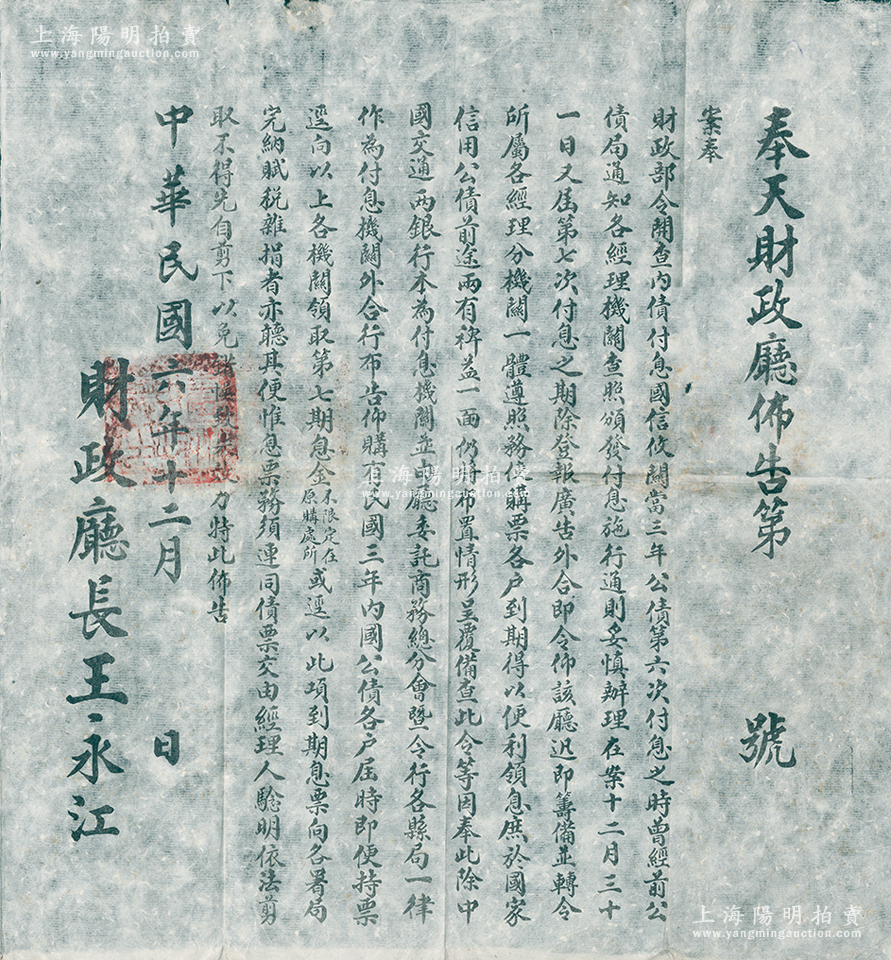 奉天財政廳佈告第　號
案奉
財政部令開查內債付息國信攸關當三年公債第六次付息之時曾經前公
債局通知各經理機關查照頒發付息施行通則妥慎辦理在案十二月三十
一日又屆第七次付息之期除登報廣告外合即令仰該廳迅即籌備並轉令
所屬各經理分機關一體遵照務使購票各戶到期得以便利領息庶於國家
信用公債前途兩有裨益一面仍將布置情形呈覆備查此令等因奉此除中
國交通兩銀行本為付息機關並由廳委託商務總分會暨令行各縣局一律
作為付息機關外合行布告仰購有民國三年內國公債各戶屆時即便持票
逕向以上各機關領取第七期息金不限定在原購處所或逕以此項到期息票向各署局
完納賦稅雜捐者亦聽其便惟息票務須連同債票交由經理人驗明依法剪
取不得先自剪下以免力特此佈告
中華民國六年十二月　日
財政廳長王永江
上海陽明拍賣
www.yangmingauction.com
上海陽明拍賣
www.yangmingauction.com
上海陽明拍賣
www.yangmingauction.com